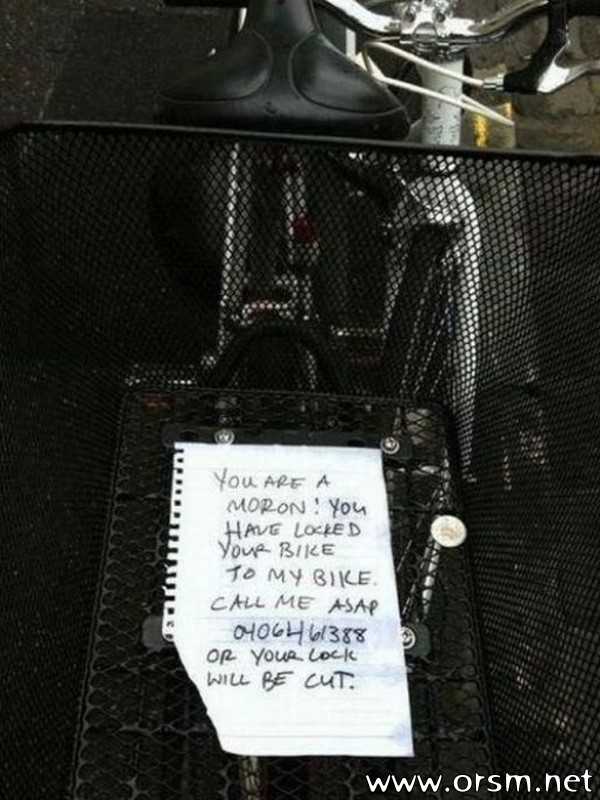 YOU ARE A
MORON! YOU
HAVE LOCKED
YOUR BIKE
TO MY BIKE.
CALL ME ASAP
0406461388
OR YOUR LOCK
WILL BE CUT.
www.orsm.net